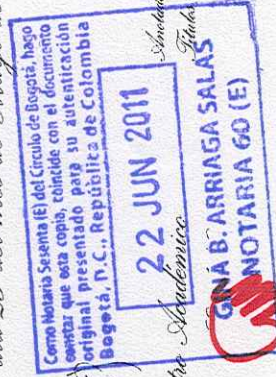 Como Notaria Sesenta (E) del Círculo de Bogotá, hago
constar que esta copia, coincide con el documento
original presentado para su autenticación
Bogotá, D.C., República de Colombia
22 JUN 2011
GINA B. ARRIAGA SALAS
NOTARIA 60 (E)
del mes de
Académico